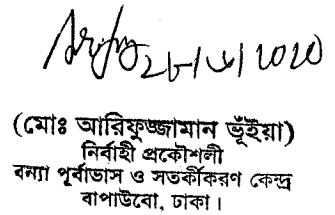 (মোঃ আরিফুজ্জামান ভূঁইয়া)
নির্বাহী প্রকৌশলী
বন্যা পূর্বাভাস ও সতর্কীকরণ কেন্দ্র
বাপাউবো, ঢাকা।